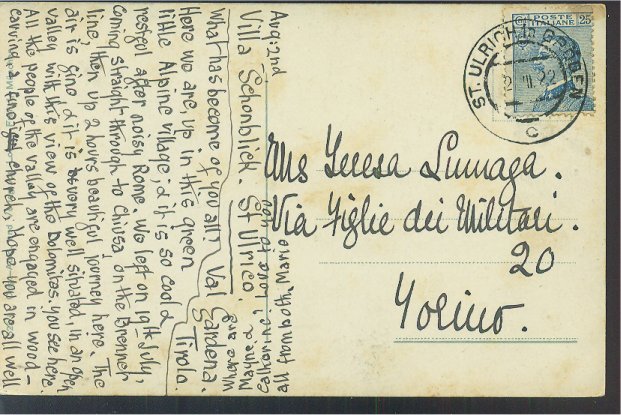 Aug: 2nd
Villa Schonblick. St Ulrico.
What has become of you all! Val Gardena.
Here we are, up in this green Tirolo.
little Alpine village, & it is so cool &
restful after noisy Rome. We left on 19th July,
coming straight through to Chiusa on the Brenner
line, then up 2 hours beautiful journey here. The
air is fine & it is very well situated, in an open
valley with this view of the Dolomites. You see here.
All the people of the valley are engaged in wood-
carving, & churches. Hope you are all well
and
Catherine. Love to you
all from both, Mario
POSTE ITALIANE
25
ST. ULRICH IN GRÖDEN
22
C
Mrs Teresa Lumaga.
Via Figlie dei Militari.
20
Torino.